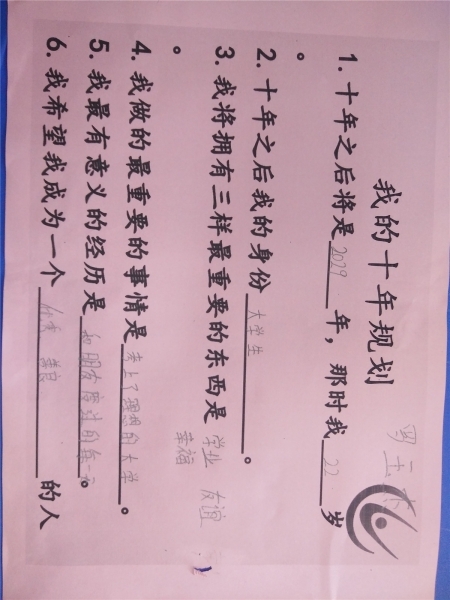 我的十年规划
1. 十年之后将是2029年，那时我22岁
。
2. 十年之后我的身份大学生。
3. 我将拥有三样最重要的东西是学业 友谊
幸福
。
4. 我做的最重要的事情是考上了理想的大学。
5. 我最有意义的经历是和朋友度过的每一天。
6. 我希望我成为一个优秀 善良的人